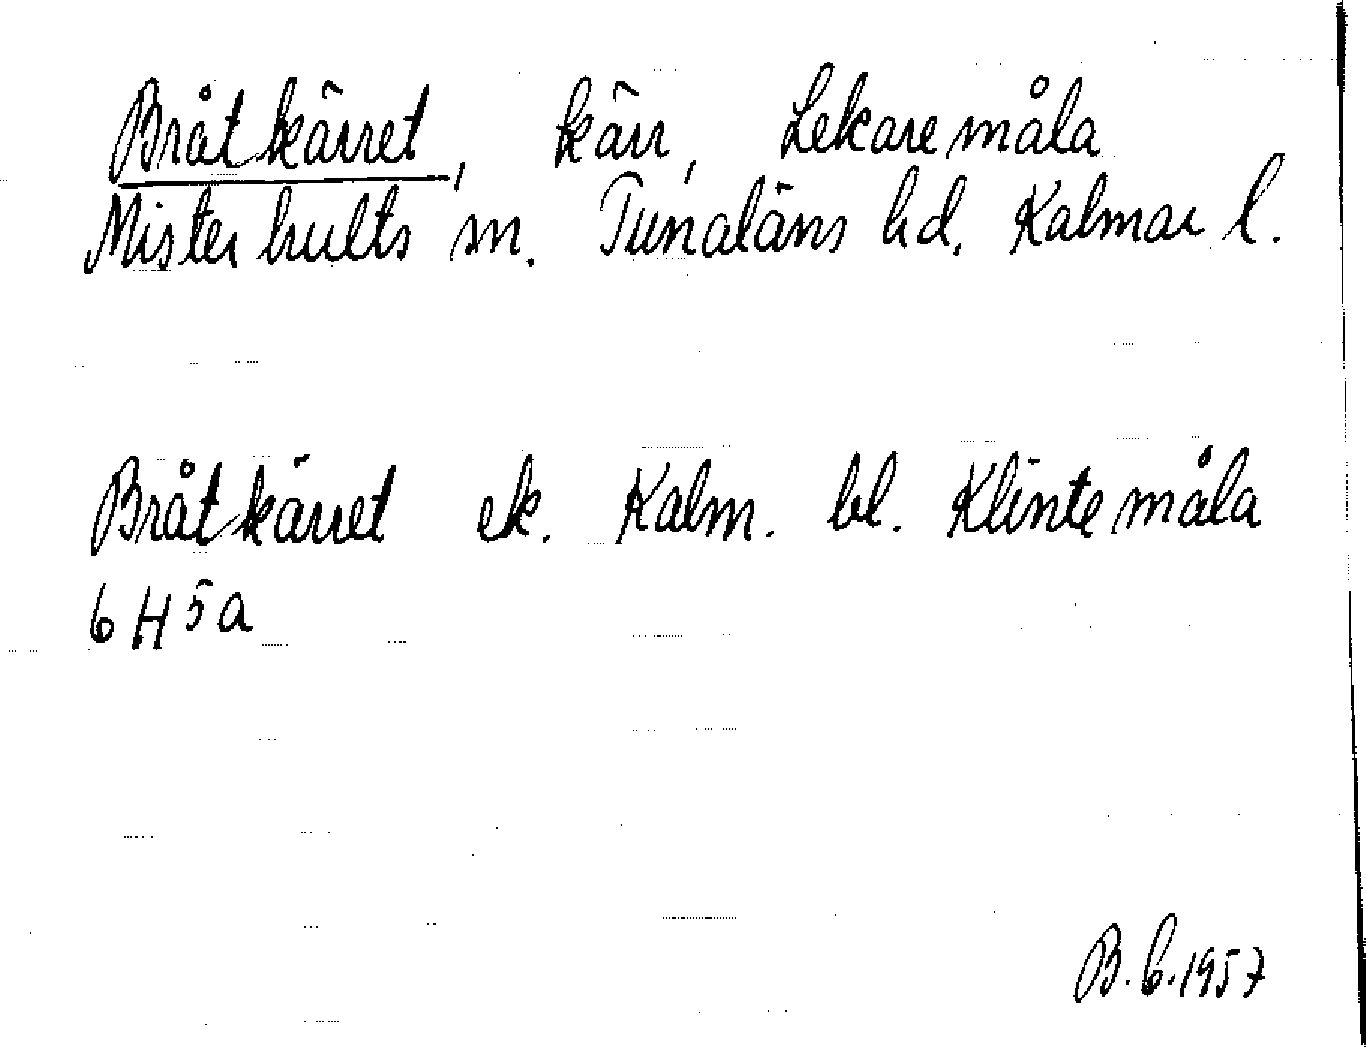 Bråtkärret, kärr, Lekaremåla
Misterhults sn. Tunaläns hd. Kalmar l.
Bråtkärret ek. Kalm. bl. Klintemåla
6H5a
B.b.1957